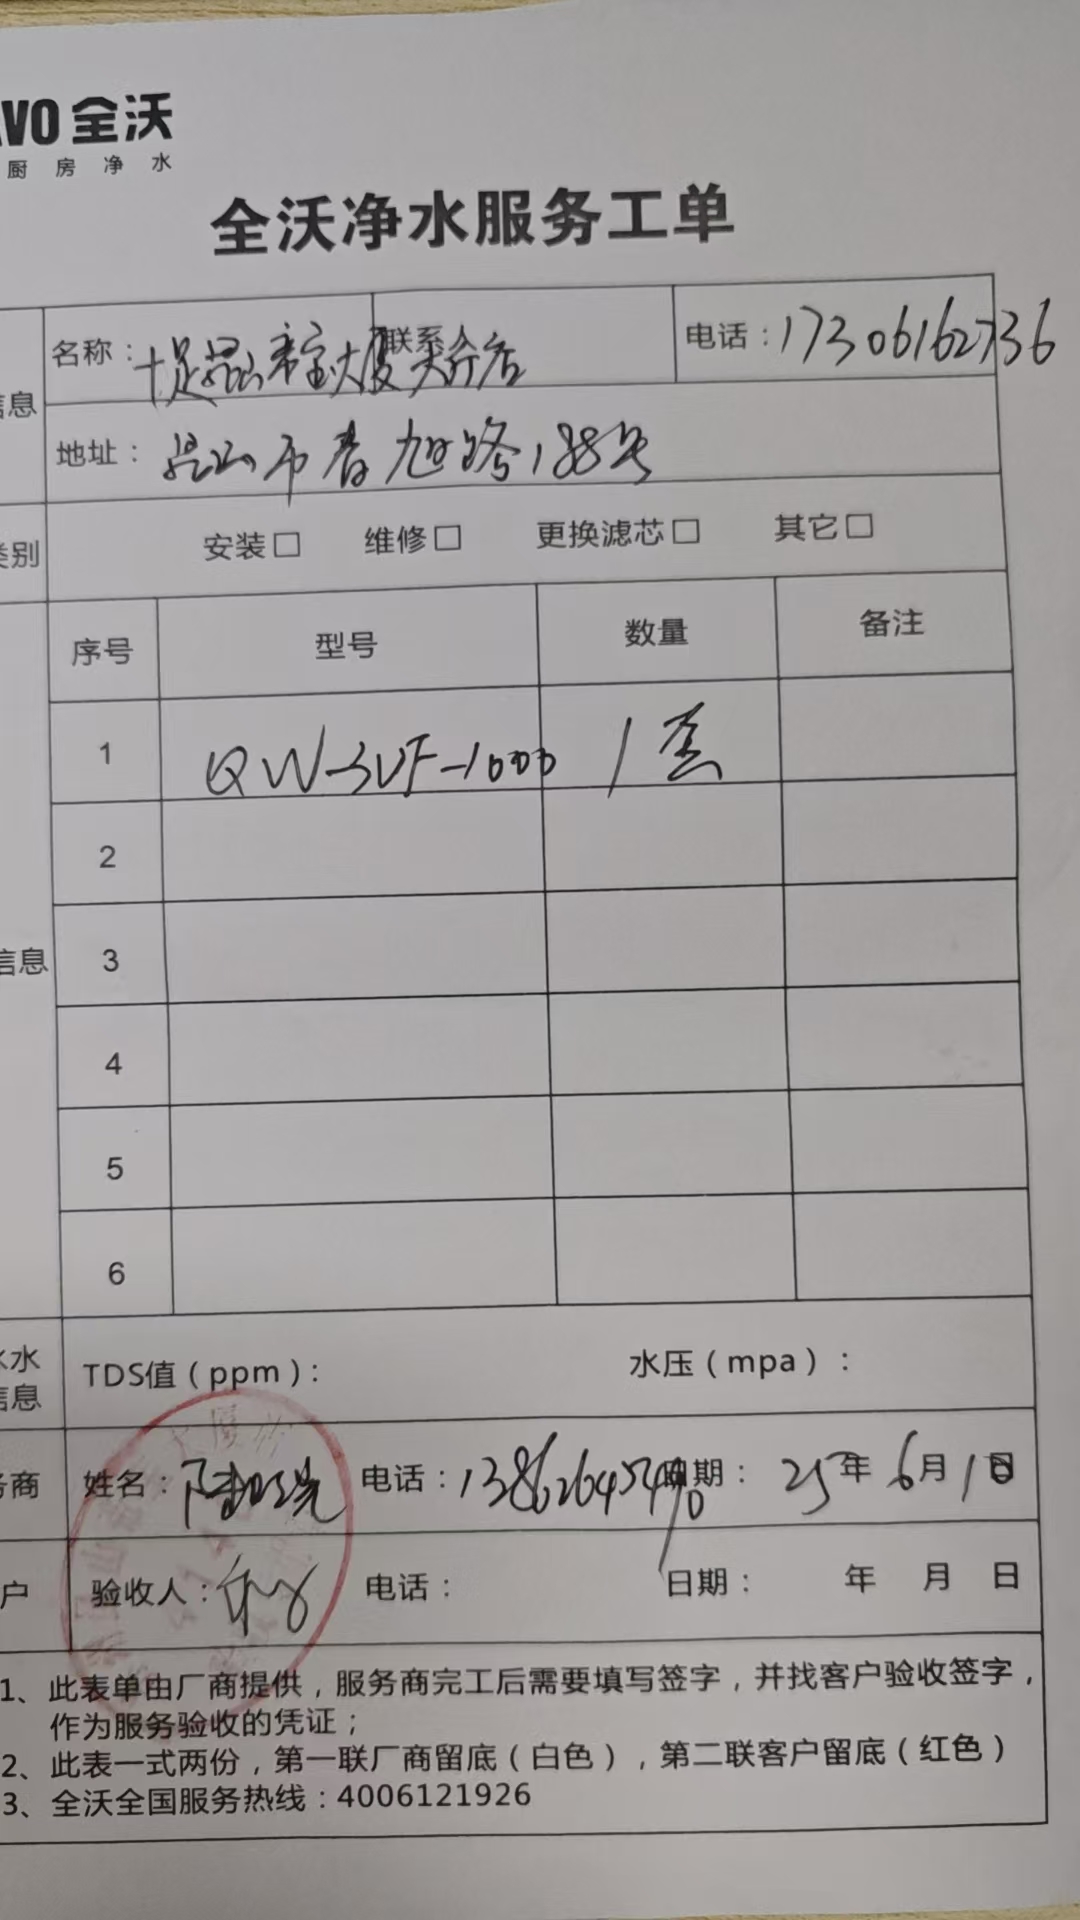 VO 全沃
厨房净水
全沃净水服务工单
信息
名称：十足昆山帝宝大厦 联系 店
电话：17306162736
地址：昆山市春旭路188号
类别
安装□ 维修□ 更换滤芯□ 其它□
序号 型号 数量 备注
1 QW-SUF-1000 1套
2
信息 3
4
5
6
水
信息
TDS值（ppm）： 水压（mpa）：
务商 姓名： 电话：13862645490 日期：25年6月1日
户 验收人： 电话： 日期： 年 月 日
1、此表单由厂商提供，服务商完工后需要填写签字，并找客户验收签字，
作为服务验收的凭证；
2、此表一式两份，第一联厂商留底（白色），第二联客户留底（红色）
3、全沃全国服务热线：4006121926